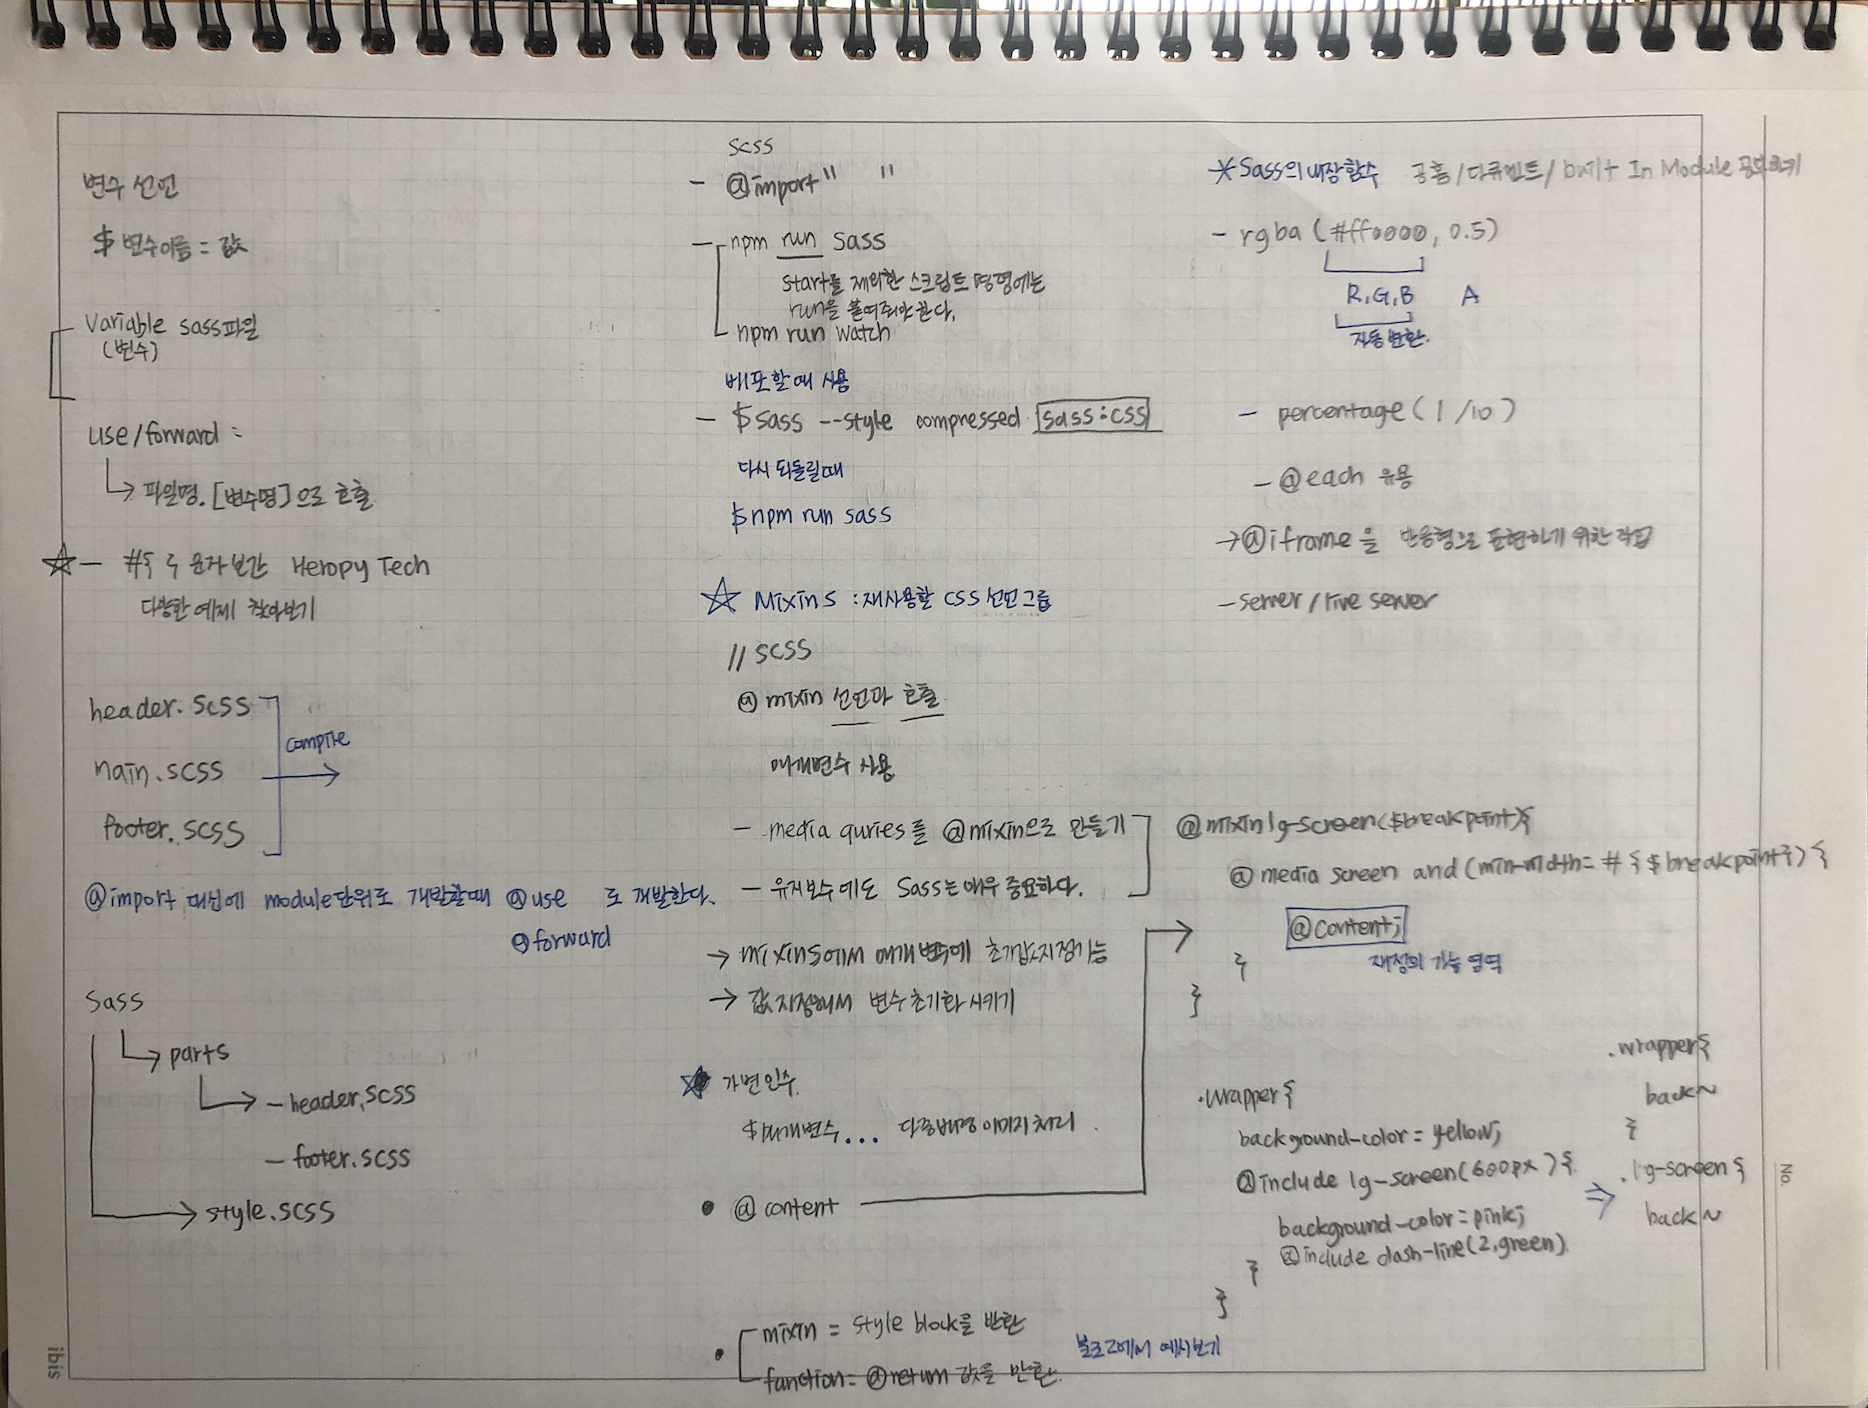 변수 선언
$ 변수이름 = 값
Variable sass파일
(변수)
use/forward :
파일명.[변수명]으로 호출
☆ - #{ } 문자 보간 Heropy Tech
다양한 예제 찾아보기
header.scss
main.scss
footer.scss
compile
@import 대신에 module단위로 개발할때 @use 로 개발한다.
@forward
Sass
parts
- header.scss
- footer.scss
style.scss
scss
- @import " "
- npm run sass
start를 제외한 스크립트 명령에는
run을 붙여줘야한다.
npm run watch
배포할때 사용
- $sass --style compressed sass:css
다시 되돌릴때
$npm run sass
☆ Mixins : 재사용할 CSS 선언 그룹
// SCSS
@mixin 선언과 호출
매개변수 사용
- media quries를 @mixin으로 만들기
- 유지보수에도 Sass는 매우 중요하다.
→ mixins에서 매개변수에 초기값지정가능
→ 값 지정해서 변수초기화 시키기
☆ 가변인수.
$매개변수... 다중배경이미지 처리.
• @content
• mixin = style block을 반환
function = @return 값을 반환.
블로그에서 예시보기
*Sass의 내장함수 공홈/다큐먼트/built In Module 공부하기
- rgba (#ff0000, 0.5)
R,G,B A
자동변환.
- percentage ( 1 /10 )
- @each 유용
→ @iframe을 반응형으로 표현하기 위한 작업
- server / live server
@mixin lg-screen($breakpoint){
@media screen and (min-width= #{$breakpoint}) {
@content;
재정의 가능 영역
}
}
.wrapper{
background-color = yellow;
@include lg-screen(600px){
background-color = pink;
@include dash-line(2,green).
}
}
⇒
.wrapper{
back~
}
.lg-screen{
back~
No.
ibis